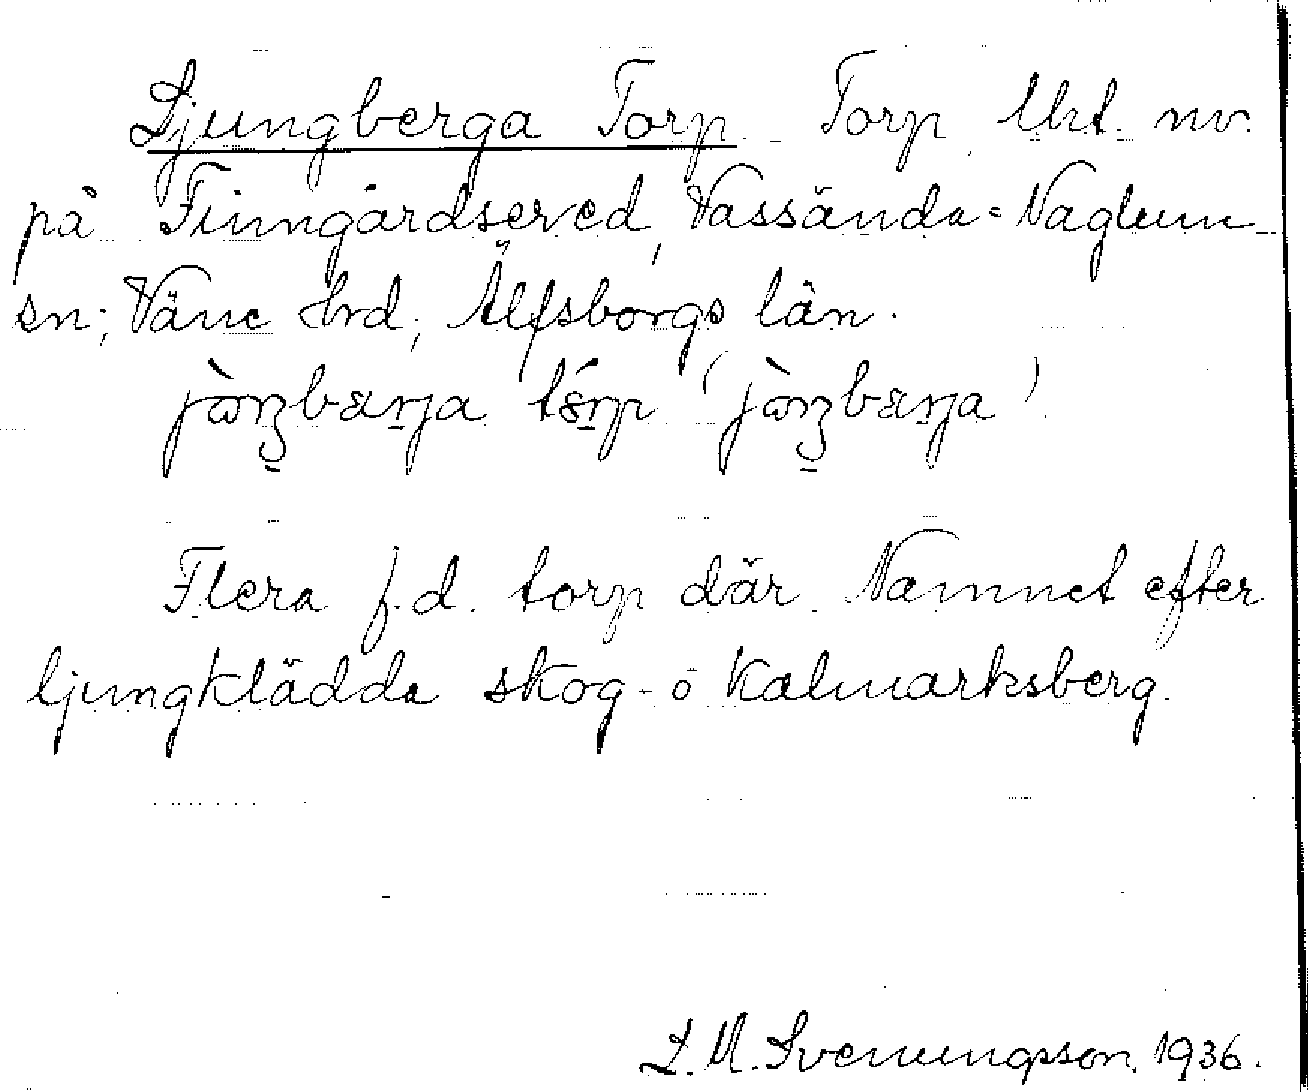 Ljungberga Torp. Torp Utk. nv.
på Finngårdsered, Vassända-Naglum
sn; Väne Hrd; Älfsborgs län.
Flera f.d. torp där. Namnet efter
ljungklädda skog- o kalmarksberg.
L. M. Svenungsson. 1936.